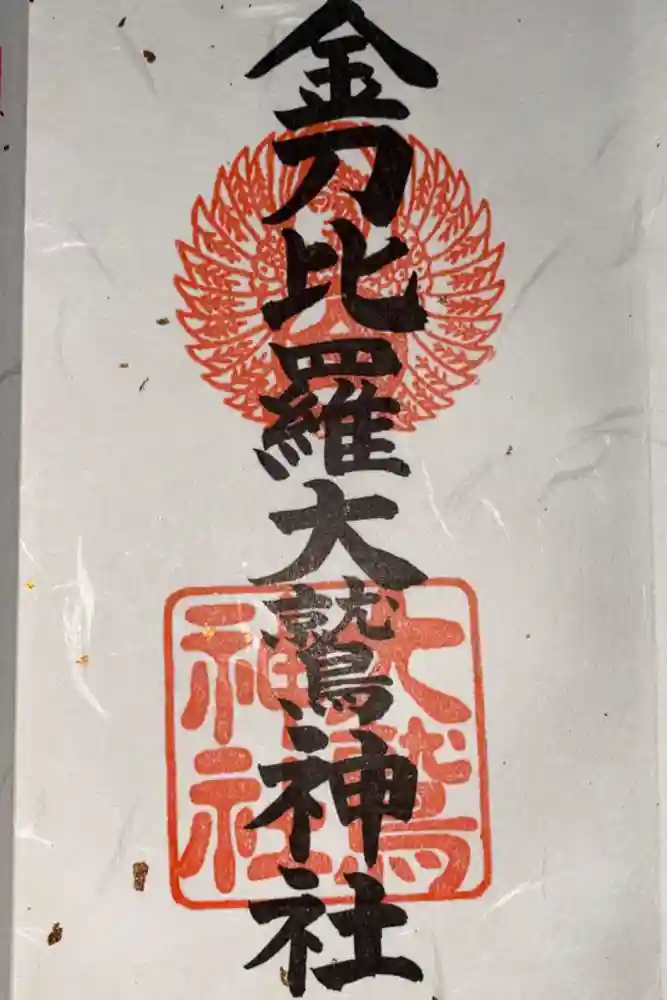 金刀比羅大鷲神社
大鷲
神社